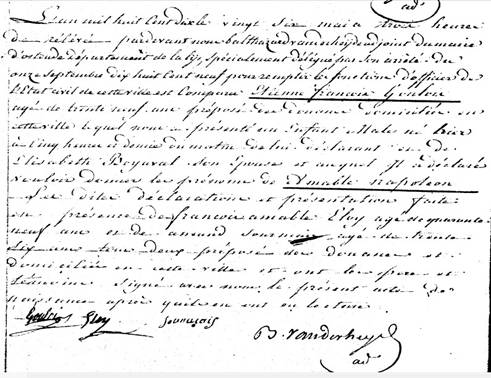 adj
L'an mil huit cent dix le vingt six mai a trois heures
de relevée pardevant nous balthazard vanderheyde adjoint du maire
d'ostende département de la Lys, spécialement délégué par son arrêté du
onze septembre dix huit cent neuf pour remplir les fonctions d'officier de
l'Etat civil de cette ville est comparu Etienne françois
agé de trente neuf ans préposé des douanes domicilié en
cette ville lequel nous a présenté un Enfant Male né hier
à cinq heures et demie du matin de lui déclarant et de
Elisabeth son Epouse et auquel Il a déclaré
vouloir donner les prénoms de Amable napoleon
Les dites déclaration et présentation faites
en présence de francois amable Eloy agé de quarante
neuf ans et de amand agé de trente
six ans tous deux préposés des douanes et
domiciliés en cette ville et ont les pere et
témoins signé avec nous le présent acte de
naissance après qu'il en ont eu lecture.
Eloy
B. vanderheyde
adj